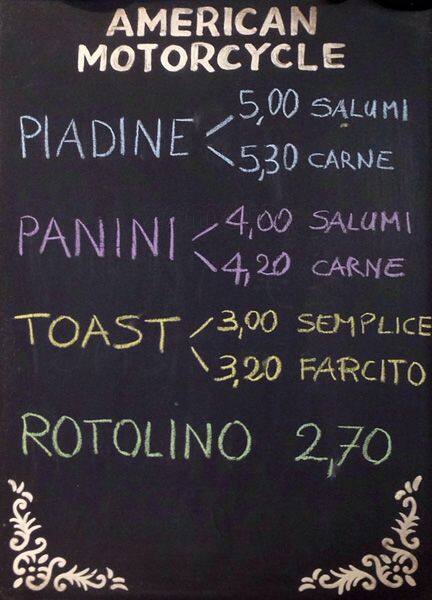 AMERICAN
MOTORCYCLE
PIADINE 5,00 SALUMI
5,30 CARNE
PANINI 4,00 SALUMI
4,20 CARNE
TOAST 3,00 SEMPLICE
3,20 FARCITO
ROTOLINO 2,70